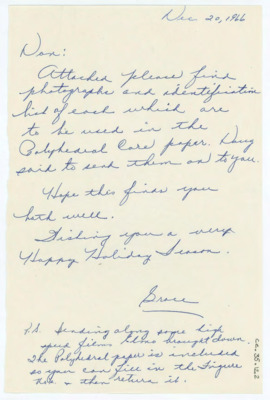 Dec 20, 1966
Don:
Attached please find
photographs and identification
list of each which are
to be used in the
Polyhedral Core paper. Doug
said to send them on to you.
Hope this finds you
both well.
Wishing you a very
Happy Holiday Season.
Grace
P.S. Sending along some high
speed films Glenn brought down.
The Polyhedral paper is included
so you can fill in the Figure
nos. & then return it.